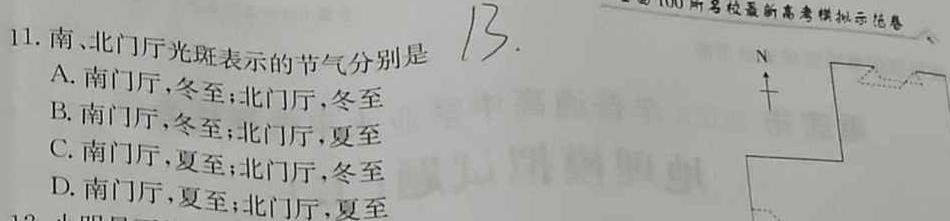 100所名校最新高考模拟示范卷
11. 南、北门厅光斑表示的节气分别是 13.
A. 南门厅,冬至;北门厅,冬至
B. 南门厅,冬至;北门厅,夏至
C. 南门厅,夏至;北门厅,冬至
D. 南门厅,夏至;北门厅,夏至
N